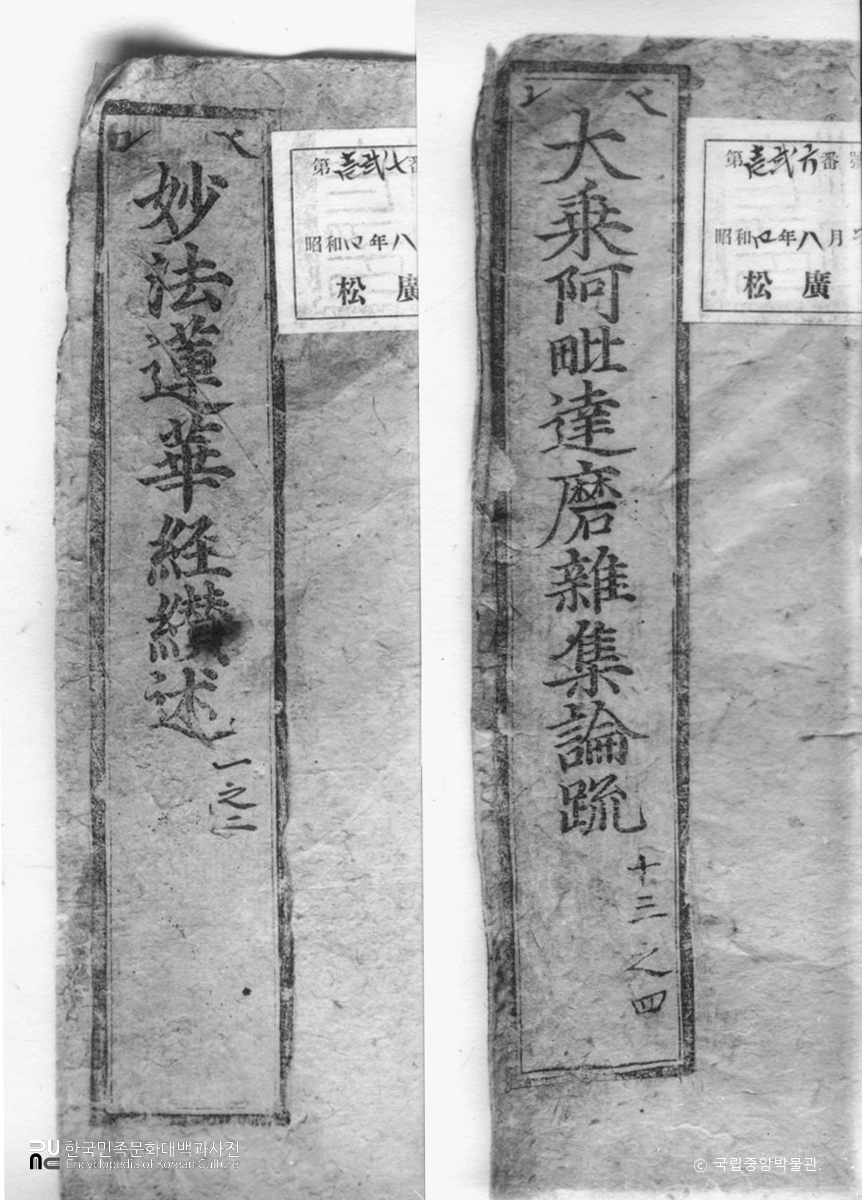 妙法蓮華経纉述
一之二
第壱弐七番
昭和四年八
松廣
大乗阿毗達磨雜集論疏
十三之四
第壱弐六番號
昭和四年八月
松廣
한국민족문화대백과사전
Encyclopedia of Korean Culture
© 국립중앙박물관